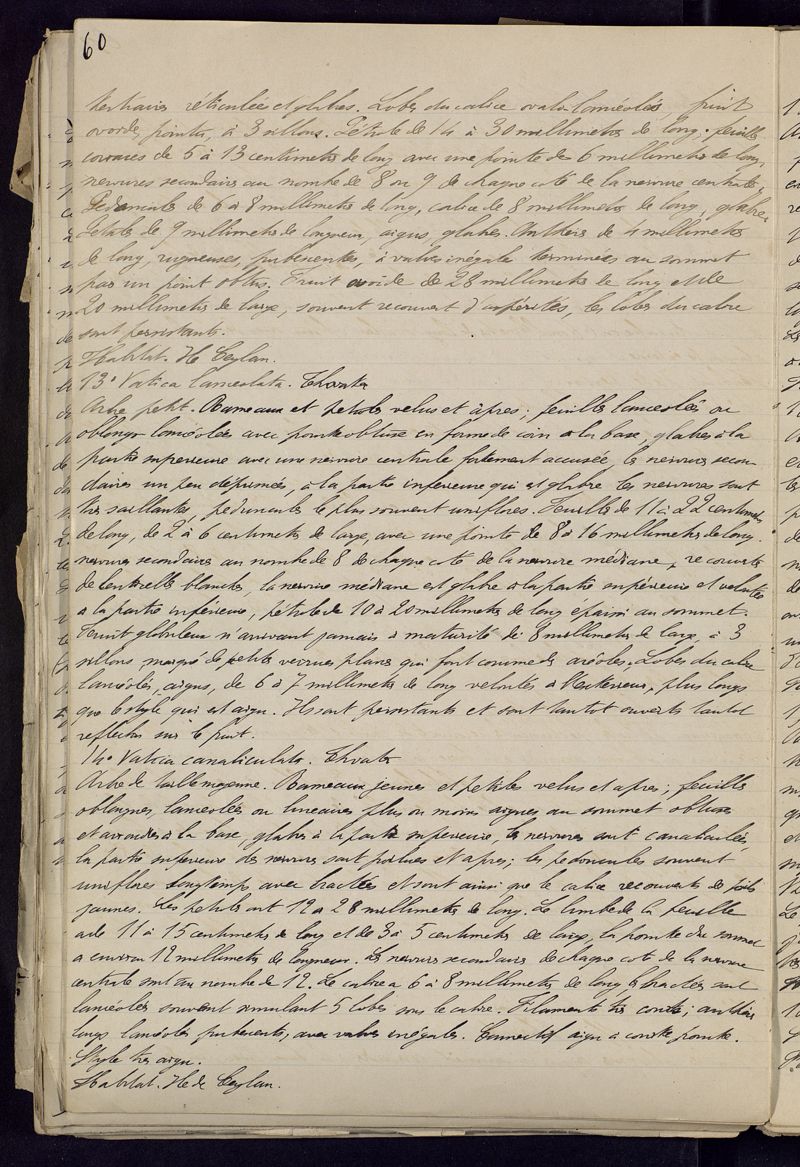 60
tertiaires réticulées et glabres. Lobes du calice ovales lancéolés, fruit
ovoïde, pointu, à 3 sillons. Pétiole de 14 à 30 millimètres de long; feuilles
coriaces de 5 à 13 centimètres de long avec une pointe de 6 millimètres de long,
nervures secondaires au nombre de 8 ou 9 de chaque côté de la nervure centrale,
Pédoncules de 6 à 8 millimètres de long, calice de 8 millimètres de long, glabre,
Pétales de 9 millimètres de longueur, aigus, glabres. Anthères de 4 millimètres
de long, rugueuses, pubescentes, à valves inégales terminées au sommet
par un point obtus. Fruit ovoïde de 28 millimètres de long et de
20 millimètres de large, souvent recouvert d'aspérités, les lobes du calice
sont persistants.
Habitat. Ile Ceylan.
13° Vatica lanceolata. Thwaites
Arbre petit. Rameaux et pétioles velus et âpres; feuilles lancéolées ou
oblongues lancéolées avec pointe obtuse en forme de coin à la base, glabres à la
partie supérieure avec une nervure centrale fortement accusée, les nervures secon
daires un peu déprimées, à la partie inférieure qui est glabre les nervures sont
très saillantes, pédoncules le plus souvent uniflores. Feuilles de 11 à 22 centimètres
de long, de 2 à 6 centimètres de large, avec une pointe de 8 à 16 millimètres de long.
nervures secondaires au nombre de 8 de chaque côté de la nervure médiane, recouverts
de lenticelles blanches, la nervure médiane est glabre à la partie supérieure et veloutée
à la partie inférieure, pétiole de 10 à 20 millimètres de long épaissi au sommet.
Fruit globuleux n'arrivant jamais à maturité de 8 millimètres de large, à 3
sillons, marqué de petites verrues planes qui font comme des aréoles. Lobes du calice
lancéolés, aigus, de 6 à 7 millimètres de long veloutés à l'extérieur, plus longs
que le style qui est aigu. Ils sont persistants et sont tantôt ouverts tantôt
réfléchis sur le fruit.
14° Vatica canaliculata. Thwaites
Arbre de taille moyenne. Rameaux jeunes et pétioles velus et âpres; feuilles
oblongues, lancéolées ou linéaires plus ou moins aigues au sommet obtuses
et arrondies à la base, glabres à la partie supérieure, les nervures sont canaliculées
la partie supérieure des nervures sont poilues et âpres; les pédoncules souvent
uniflores longtemps avec bractées et sont ainsi que le calice recouverts de poils
jaunes. Les pétioles ont 12 à 28 millimètres de long. Le limbe de la feuille
a de 11 à 15 centimètres de long et de 3 à 5 centimètres de large, la pointe du sommet
a environ 12 millimètres de longueur. Les nervures secondaires de chaque côté de la nervure
centrale sont au nombre de 12. Le calice a 6 à 8 millimètres de long les bractées sont
lancéolés souvent simulant 5 lobes sous le calice. Filaments très courts; anthères
longs lancéolés pubescents, avec valves inégales. Connectif aigu à courte pointe.
Style très aigu.
Habitat. Ile de Ceylan.